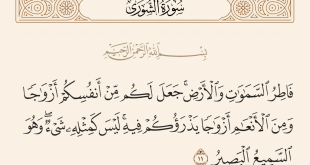 سُورَةُ الشُّورَىٰ
بِسْمِ اللَّهِ الرَّحْمَٰنِ الرَّحِيمِ
فَاطِرُ ٱلسَّمَٰوَٰتِ وَٱلْأَرْضِۚ جَعَلَ لَكُم مِّنْ أَنفُسِكُمْ أَزْوَٰجًا
وَمِنَ ٱلْأَنْعَٰمِ أَزْوَٰجًا يَذْرَؤُكُمْ فِيهِۚ لَيْسَ كَمِثْلِهِۦ شَىْءٌۖ وَهُوَ
ٱلسَّمِيعُ ٱلْبَصِيرُ ١١